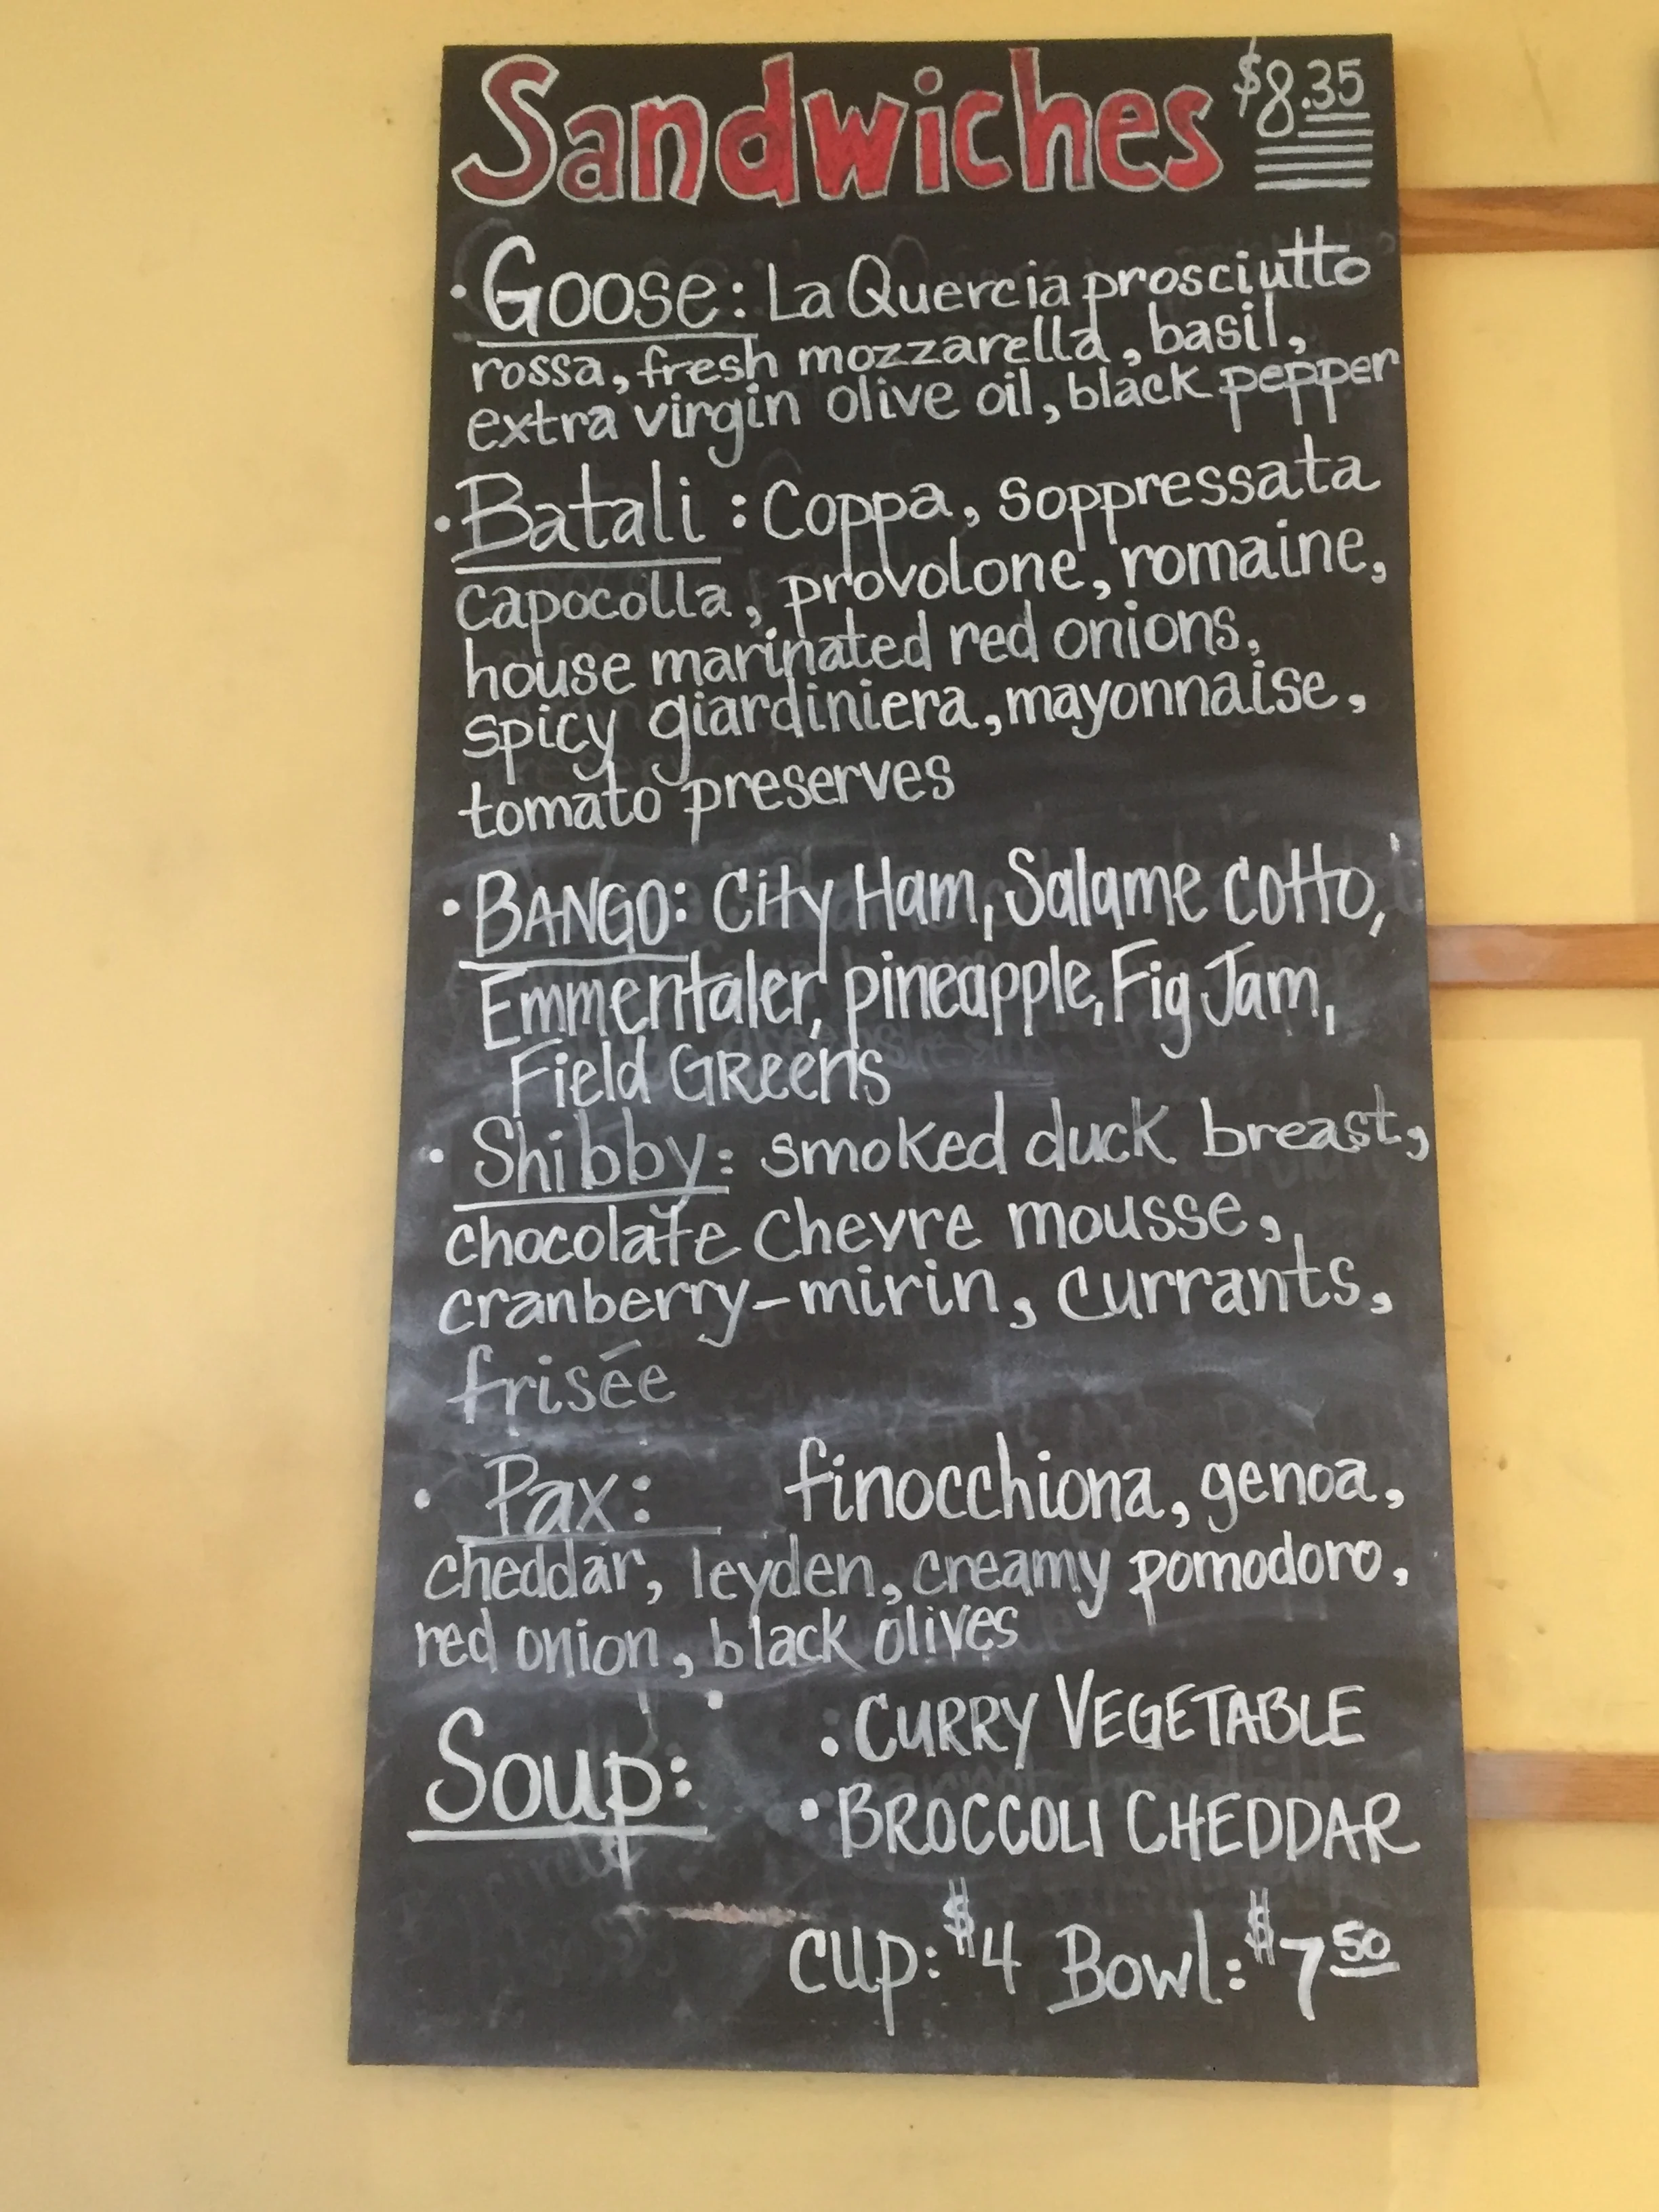 Sandwiches $8.35
• Goose: La Quercia prosciutto
rossa, fresh mozzarella, basil,
extra virgin olive oil, black pepper
• Batali: Coppa, soppressata
capocolla, provolone, romaine,
house marinated red onions,
spicy giardiniera, mayonnaise,
tomato preserves
• BANGO: City Ham, Salame cotto,
Emmentaler, pineapple, Fig Jam,
Field GReens
• Shibby: smoked duck breast,
chocolate chevre mousse,
cranberry-mirin, currants,
frisée
• Pax: finocchiona, genoa,
cheddar, leyden, creamy pomodoro,
red onion, black olives
Soup: • CURRY VEGETABLE
• BROCCOLI CHEDDAR
cup: $4 Bowl: $7 50